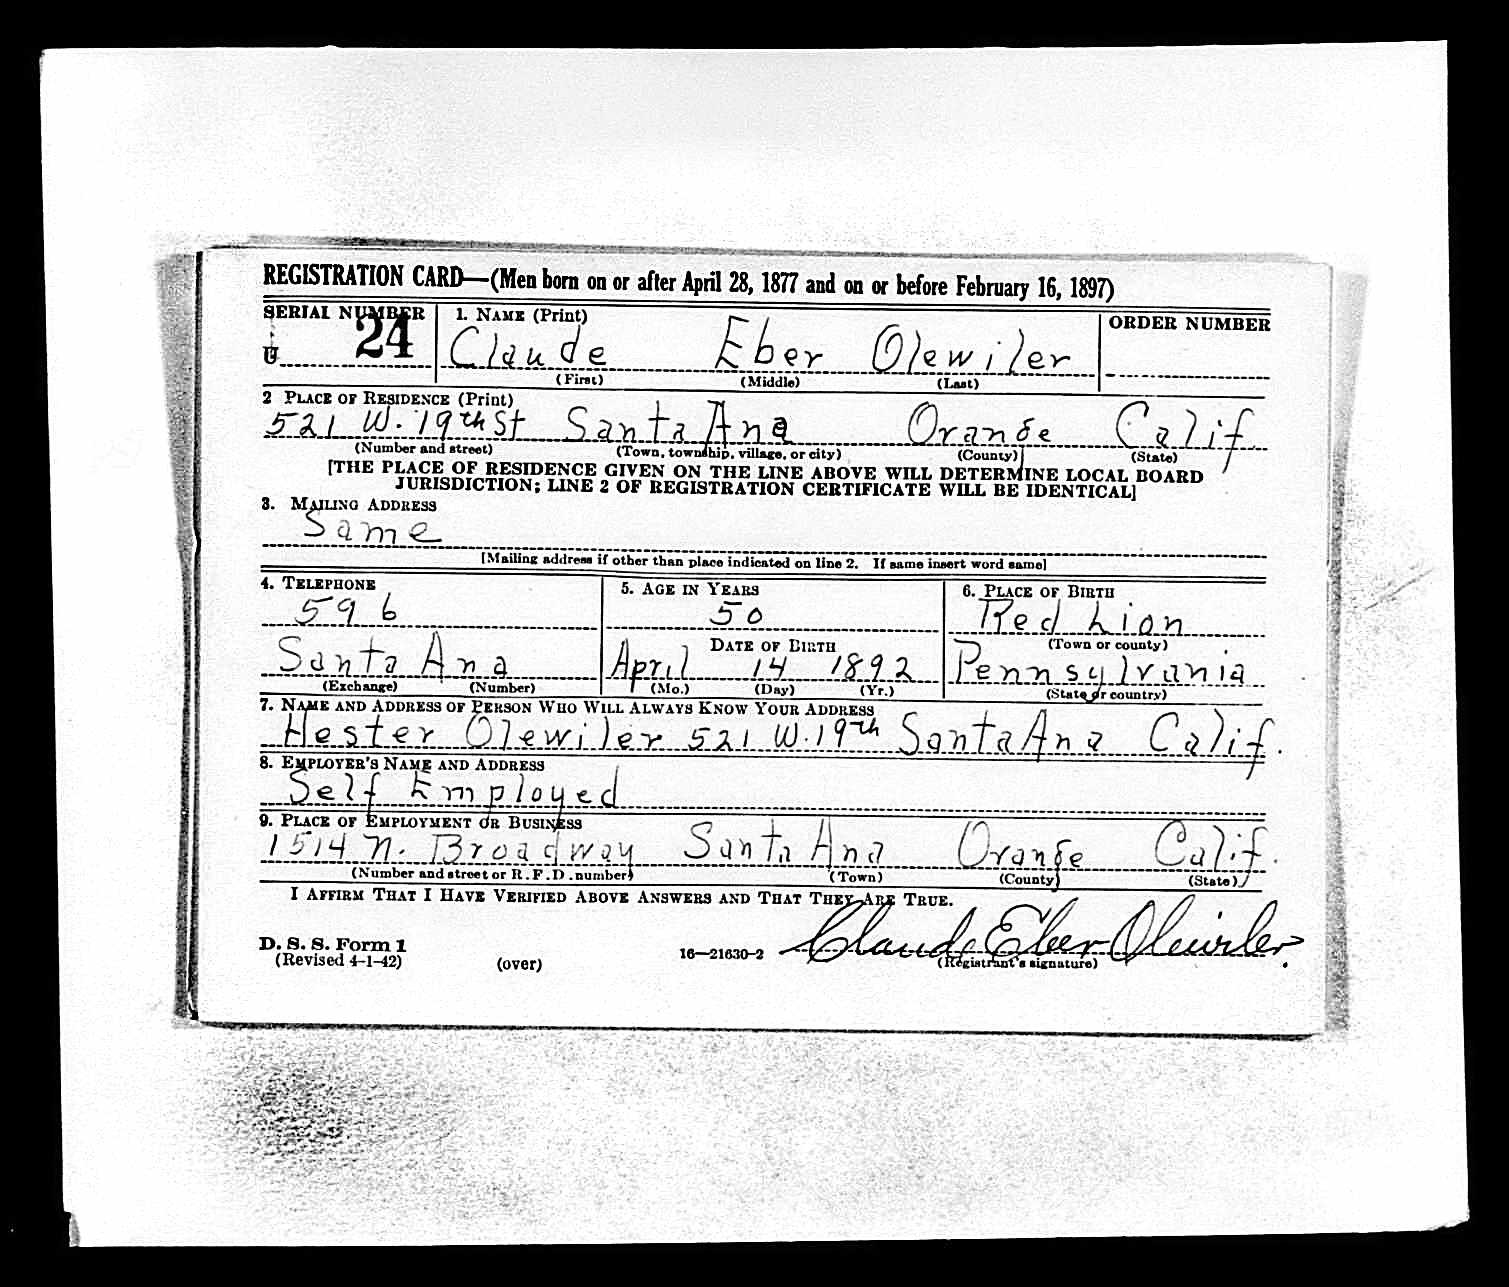 REGISTRATION CARD—(Men born on or after April 28, 1877 and on or before February 16, 1897)
SERIAL NUMBER 1. NAME (Print) ORDER NUMBER
U 24 Claude Eber Olewiler
(First) (Middle) (Last)
2 PLACE OF RESIDENCE (Print)
521 W. 19th St Santa Ana Orange Calif.
(Number and street) (Town, township, village, or city) (County) (State)
[THE PLACE OF RESIDENCE GIVEN ON THE LINE ABOVE WILL DETERMINE LOCAL BOARD
JURISDICTION; LINE 2 OF REGISTRATION CERTIFICATE WILL BE IDENTICAL]
3. MAILING ADDRESS
Same
[Mailing address if other than place indicated on line 2. If same insert word same]
4. TELEPHONE 5. AGE IN YEARS 6. PLACE OF BIRTH
596 50 Red Lion
DATE OF BIRTH (Town or county)
Santa Ana April 14 1892 Pennsylvania
(Exchange) (Number) (Mo.) (Day) (Yr.) (State or country)
7. NAME AND ADDRESS OF PERSON WHO WILL ALWAYS KNOW YOUR ADDRESS
Hester Olewiler 521 W. 19th Santa Ana Calif.
8. EMPLOYER'S NAME AND ADDRESS
Self Employed
9. PLACE OF EMPLOYMENT OR BUSINESS
1514 N. Broadway Santa Ana Orange Calif.
(Number and street or R. F. D. number) (Town) (County) (State)
I AFFIRM THAT I HAVE VERIFIED ABOVE ANSWERS AND THAT THEY ARE TRUE.
D. S. S. Form 1
(Revised 4-1-42) (over) 16—21630-2 Claude Eber Olewiler.
(Registrant's signature)